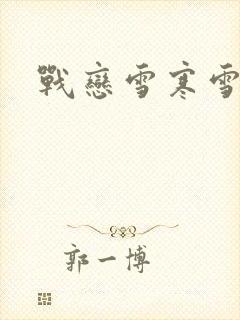 戰戀雪寒雪
郭一博